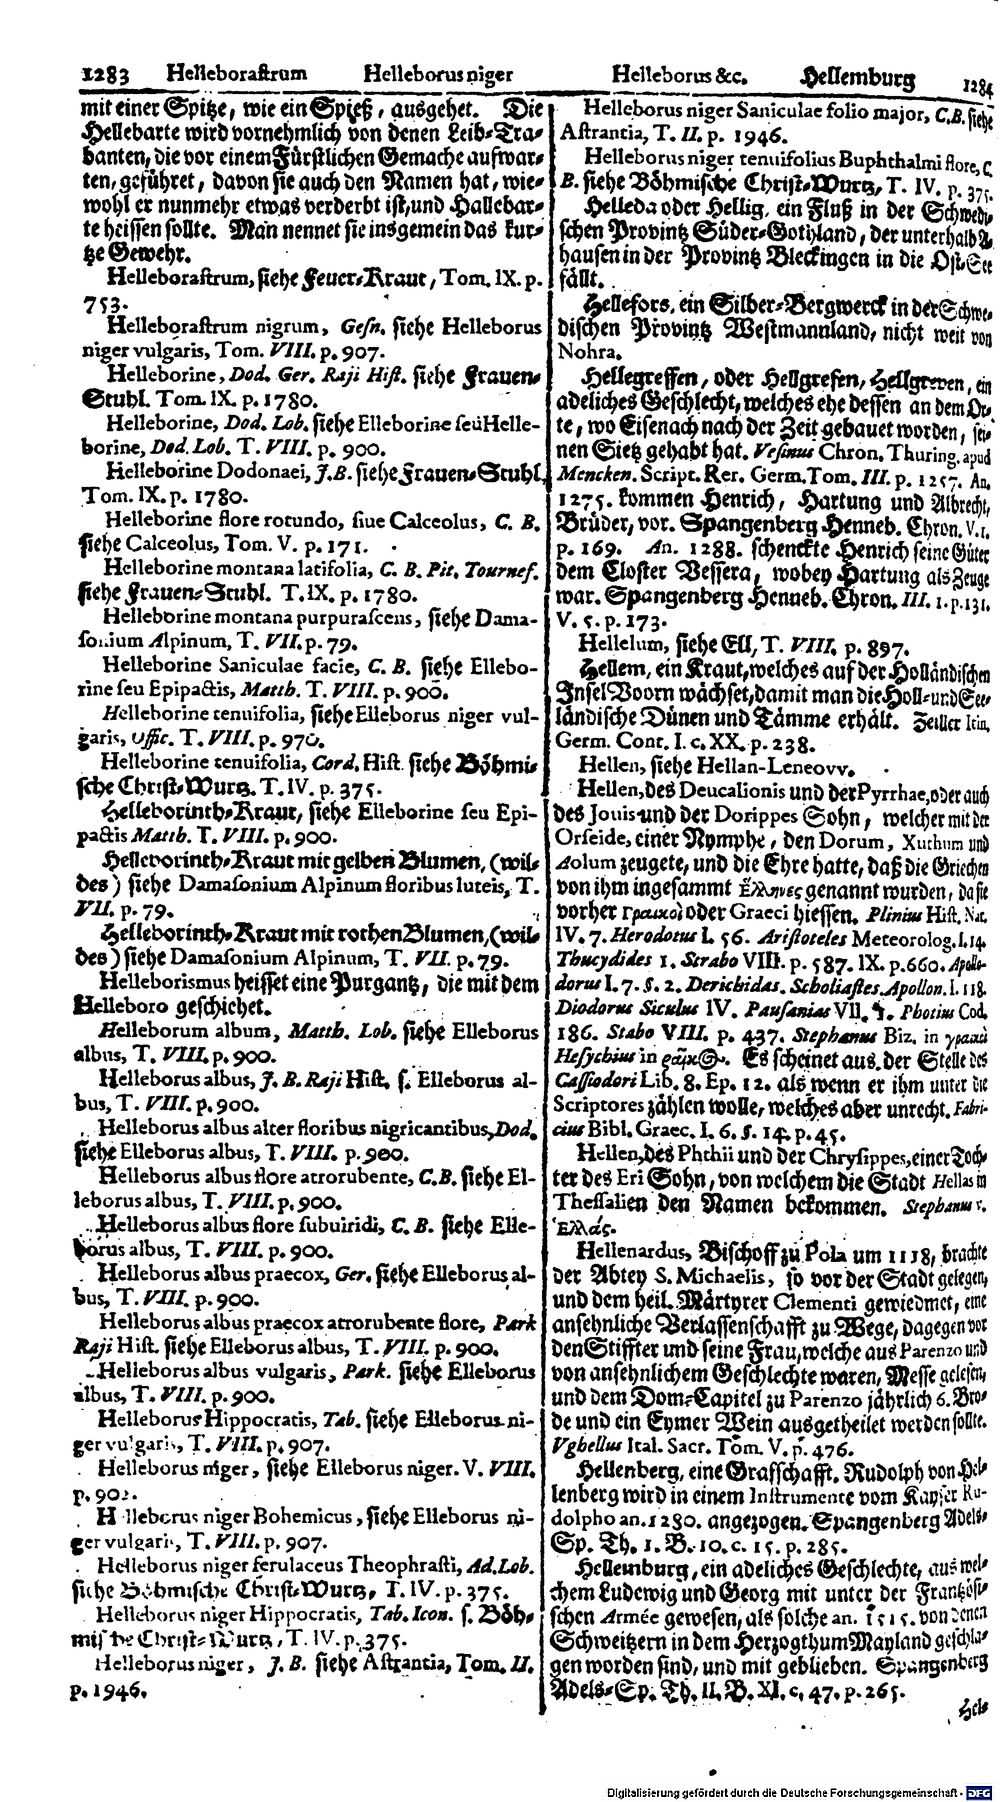 1283 Helleborastrum Helleborus niger
mit einer Spitze, wie ein Spieß, ausgehet. Die
Hellebarte wird vornehmlich von denen Leib-Tra-
banten, die vor einem Fürstlichen Gemache aufwar-
ten, geführet, davon sie auch den Namen hat, wie-
wohl er nunmehr etwas verderbt ist, und Hallebar-
te heissen sollte. Man nennet sie insgemein das kur-
tze Gewehr.
Helleborastrum, siehe Feuer-Kraut, Tom. IX. p.
753.
Helleborastrum nigrum, Gesn. siehe Helleborus
niger vulgaris, Tom. VIII. p. 907.
Helleborine, Dod. Ger. Raji Hist. siehe Frauen-
Stuhl. Tom. IX. p. 1780.
Helleborine, Dod. Lob. siehe Elleborine seu Helle-
borine, Dod. Lob. T. VIII. p. 900.
Helleborine Dodonaei, J.B. siehe Frauen-Stuhl,
Tom. IX. p. 1780.
Helleborine flore rotundo, siue Calceolus, C. B.
siehe Calceolus, Tom. V. p. 171.
Helleborine montana latifolia, C. B. Pit. Tournef.
siehe Frauen-Stuhl. T. IX. p. 1780.
Helleborine montana purpurascens, siehe Dama-
sonium Alpinum, T. VII. p. 79.
Helleborine Saniculae facie, C. B. siehe Ellebo-
rine seu Epipactis, Matth. T. VIII. p. 900.
Helleborine tenuifolia, siehe Elleborus niger vul-
garis, Offic. T. VIII. p. 970.
Helleborine tenuifolia, Cord. Hist. siehe Böhmi-
sche Christ-Wurtz. T. IV. p. 375.
Helleborinth-Kraut, siehe Elleborine seu Epi-
pactis Matth. T. VIII. p. 900.
Helleborinth-Kraut mit gelben Blumen, (wil-
des) siehe Damasonium Alpinum floribus luteis, T.
VII. p. 79.
Helleborinth-Kraut mit rothen Blumen, (wil-
des) siehe Damasonium Alpinum, T. VII. p. 79.
Helleborismus heisset eine Purgantz, die mit dem
Helleboro geschichet.
Helleborum album, Matth. Lob. siehe Elleborus
albus, T. VIII. p. 900.
Helleborus albus, J. B. Raji Hist. s. Elleborus al-
bus, T. VIII. p. 900.
Helleborus albus alter floribus nigricantibus, Dod.
siehe Elleborus albus, T. VIII. p. 900.
Helleborus albus flore atrorubente, C.B. siehe El-
leborus albus, T. VIII. p. 900.
Helleborus albus flore subuiridi, C. B. siehe Elle-
borus albus, T. VIII. p. 900.
Helleborus albus praecox, Ger. siehe Elleborus al-
bus, T. VIII. p. 900.
Helleborus albus praecox atrorubente flore, Park
Raji Hist. siehe Elleborus albus, T. VIII. p. 900.
Helleborus albus vulgaris, Park. siehe Elleborus
albus, T. VIII. p. 900.
Helleborus Hippocratis, Tab. siehe Elleborus ni-
ger vulgaris, T. VIII. p. 907.
Helleborus niger, siehe Elleborus niger. V. VIII.
p. 902.
Helleborus niger Bohemicus, siehe Elleborus ni-
ger vulgaris, T. VIII. p. 907.
Helleborus niger ferulaceus Theophrasti, Ad. Lob.
siehe Böhmische Christ-Wurtz, T. IV. p. 375.
Helleborus niger Hippocratis, Tab. Icon. s. Böh-
mische Christ-Wurtz, T. IV. p. 375.
Helleborus niger, J. B. siehe Astrantia, Tom. II.
p. 1946.
Helleborus &c. Hellemburg 1284
Helleborus niger Saniculae folio major, C.B. siehe
Astrantia, T. II. p. 1946.
Helleborus niger tenuifolius Buphthalmi flore, C.
B. siehe Böhmische Christ-Wurtz, T. IV. p. 375.
Helleda oder Hellig, ein Fluß in der Schwedi-
schen Provintz Süder-Gothland, der unterhalb A-
hausen in der Provintz Bleckingen in die Ost-See
fällt.
Hellefors, ein Silber-Bergwerck in der Schwe-
dischen Provintz Westmannland, nicht weit von
Nohra.
Hellegreffen, oder Hellgrefen, Hellgreven, ein
adeliches Geschlecht, welches ehe dessen an dem Or-
te, wo Eisenach nach der Zeit gebauet worden, sei-
nen Sietz gehabt hat. Vesinus Chron. Thuring. apud
Mencken. Script. Rer. Germ. Tom. III. p. 1257. An.
1275. kommen Henrich, Hartung und Albrecht,
Brüder, vor. Spangenberg Henneb. Chron. V. 1.
p. 169. An. 1288. schenckte Henrich seine Güter
dem Closter Vessera, wobey Hartung als Zeuge
war. Spangenberg Henneb. Chron. III. 1. p. 131.
V. 5. p. 173.
Hellelum, siehe Ell, T. VIII. p. 897.
Hellem, ein Kraut, welches auf der Holländischen
Insel Voorn wächset, damit man die Holl- und See-
ländische Dünen und Tämme erhält. Zeiller Itin.
Germ. Cont. I. c. XX. p. 238.
Hellen, siehe Hellan-Leneovv.
Hellen, des Deucalionis und der Pyrrhae, oder auch
des Jouis und der Dorippes Sohn, welcher mit der
Orseide, einer Nymphe, den Dorum, Xuthum und
Aolum zeugete, und die Ehre hatte, daß die Griechen
von ihm ingesammt Ἕλληνες genannt wurden, da sie
vorher Γραικοὶ oder Graeci hiessen. Plinius Hist. Nat.
IV. 7. Herodotus I. 56. Aristoteles Meteorolog. I. 14.
Thucydides 1. Strabo VIII. p. 587. IX. p. 660. Apollo-
dorus I. 7. §. 2. Derichidas. Scholiastes. Apollon. I. 118.
Diodorus Siculus IV. Pausanias VII. 1. Photius Cod.
186. Stabo VIII. p. 437. Stephanus Biz. in γραικὸ
Hesychius in ῥαῖκος. Es scheinet aus der Stelle des
Cassiodori Lib. 8. Ep. 12. als wenn er ihm unter die
Scriptores zählen wolle, welches aber unrecht. Fabri-
cius Bibl. Graec. I. 6. §. 14. p. 45.
Hellen, des Phthii und der Chrysippes, einer Toch-
ter des Eri Sohn, von welchem die Stadt Hellas in
Thessalien den Namen bekommen. Stephanus v.
Ἑλλάς.
Hellenardus, Bischoff zu Pola um 1118, brachte
der Abtey S. Michaelis, so vor der Stadt gelegen,
und dem heil. Märtyrer Clementi gewiedmet, eine
ansehnliche Verlassenschafft zu Wege, dagegen vor
den Stiffter und seine Frau, welche aus Parenzo und
von ansehnlichem Geschlechte waren, Messe gelesen,
und dem Dom-Capitel zu Parenzo jährlich 6. Bro-
de und ein Eymer Wein ausgetheilet werden sollte.
Vghellus Ital. Sacr. Tom. V. p. 476.
Hellenberg, eine Grafschafft. Rudolph von Hel-
lenberg wird in einem Instrumente vom Kayser Ru-
dolpho an. 1280. angezogen. Spangenberg Adels-
Sp. Th. I. B. 10. c. 15. p. 285.
Hellemburg, ein adeliches Geschlechte, aus wel-
chem Ludewig und Georg mit unter der Französi-
schen Armée gewesen, als solche an. 1515. von denen
Schweitzern in dem Herzogthum Mayland geschla-
gen worden sind, und mit geblieben. Spangenberg
Adels-Sp. Th. II. B. XI. c. 47. p. 265.
Hel-
Digitalisierung gefördert durch die Deutsche Forschungsgemeinschaft - DFG